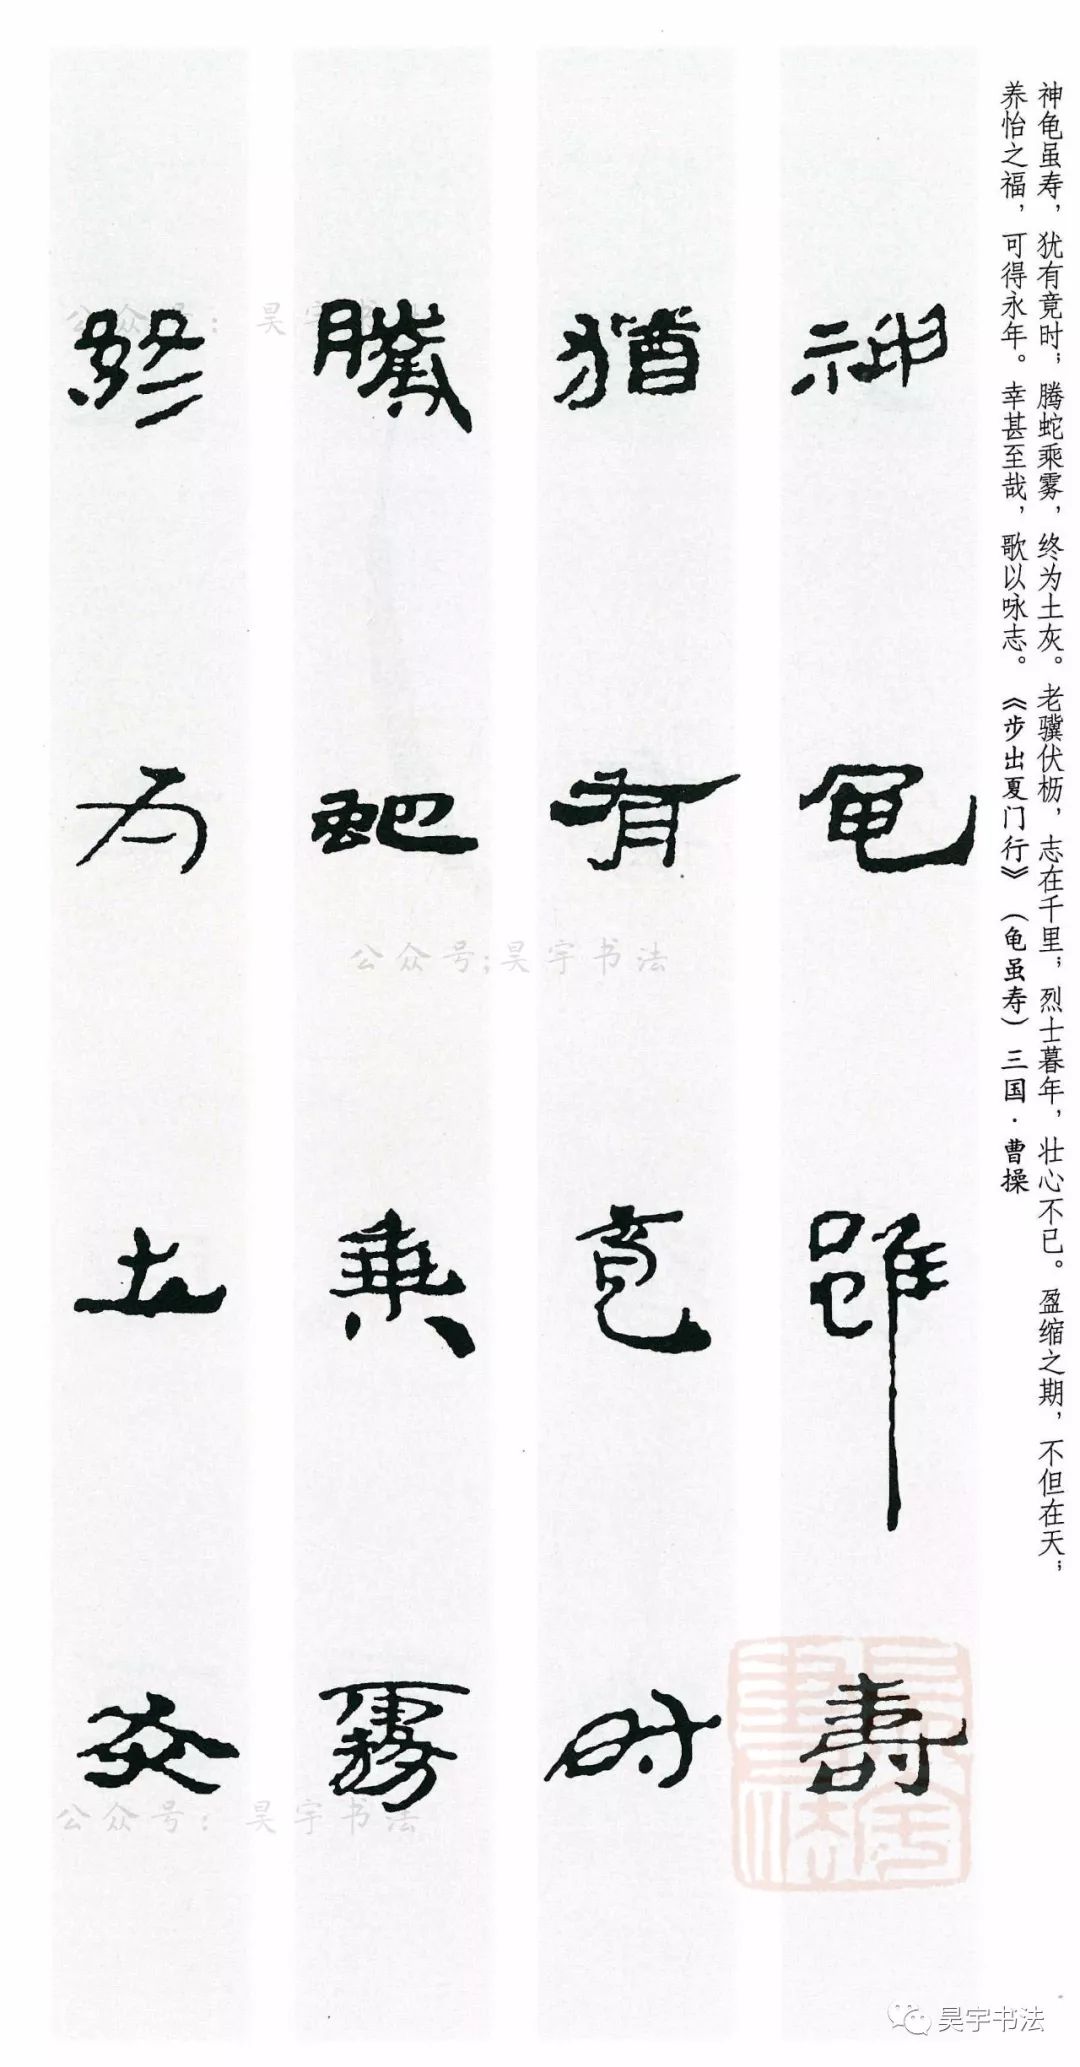 神龟虽寿，犹有竟时；腾蛇乘雾，终为土灰。老骥伏枥，志在千里；烈士暮年，壮心不已。盈缩之期，不但在天；
养怡之福，可得永年。幸甚至哉，歌以咏志。《步出夏门行》（龟虽寿）三国·曹操
神龜雖壽
猶有竟时
騰虵乘霧
終为土灰
公众号：昊宇书法
公众号；昊宇书法
公众号：昊宇书法
昊宇书法